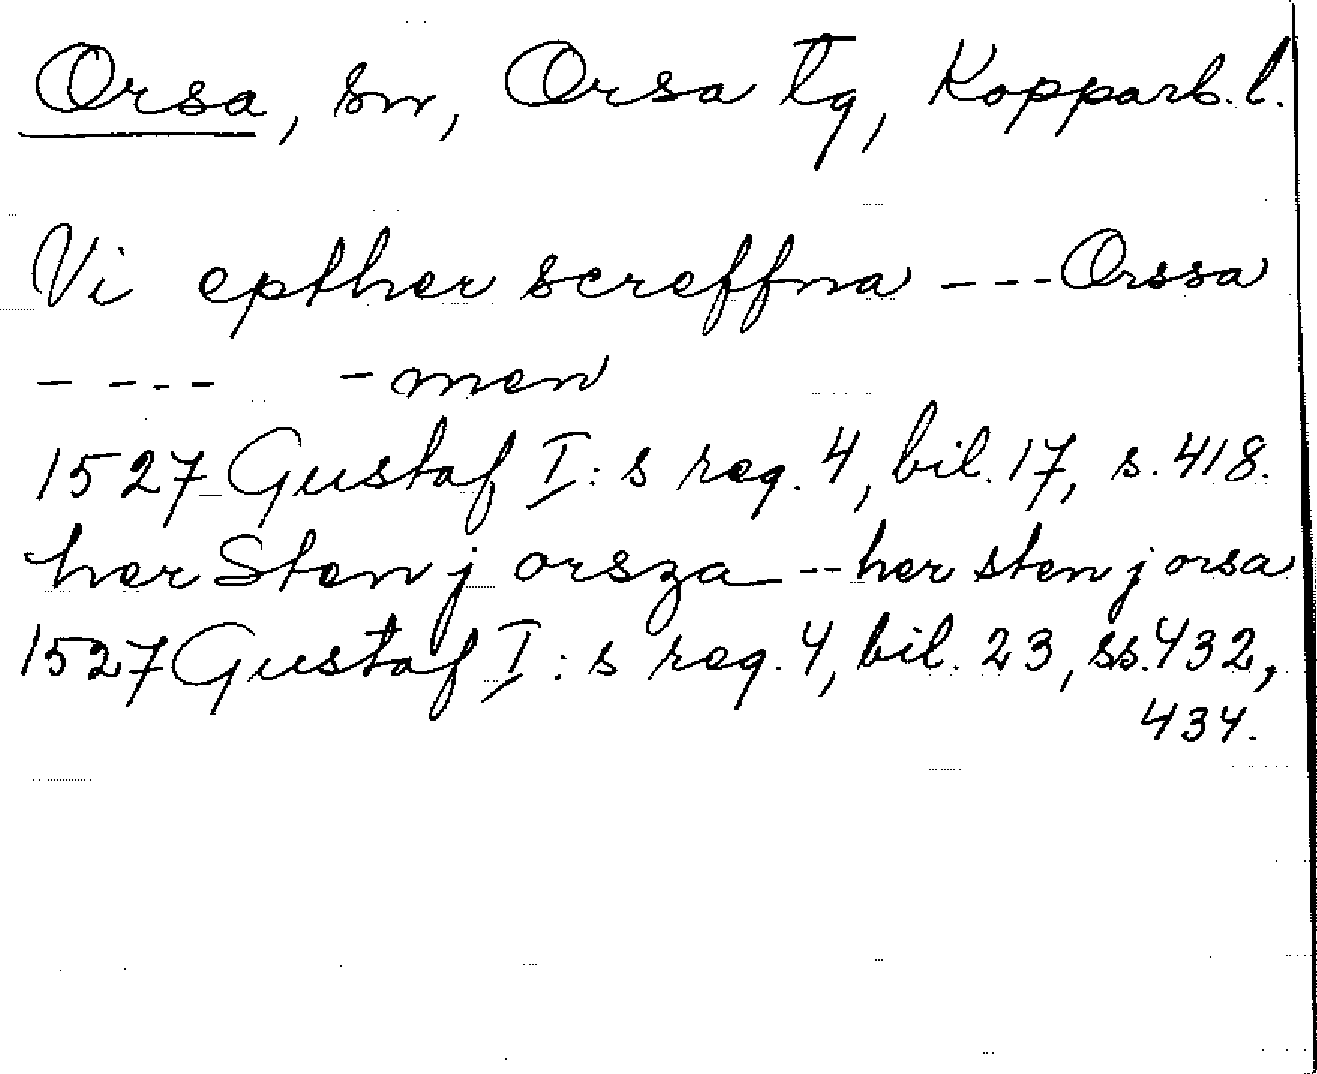 Orsa, sn, Orsa tg, Kopparb. l.
Vi epther screffna --- Orssa
- --- - - men
1527 Gustaf I:s reg. 4, bil. 17, s. 418.
her Sten j orsza -- her sten j orsa
1527 Gustaf I:s reg. 4, bil. 23, ss. 432,
434.